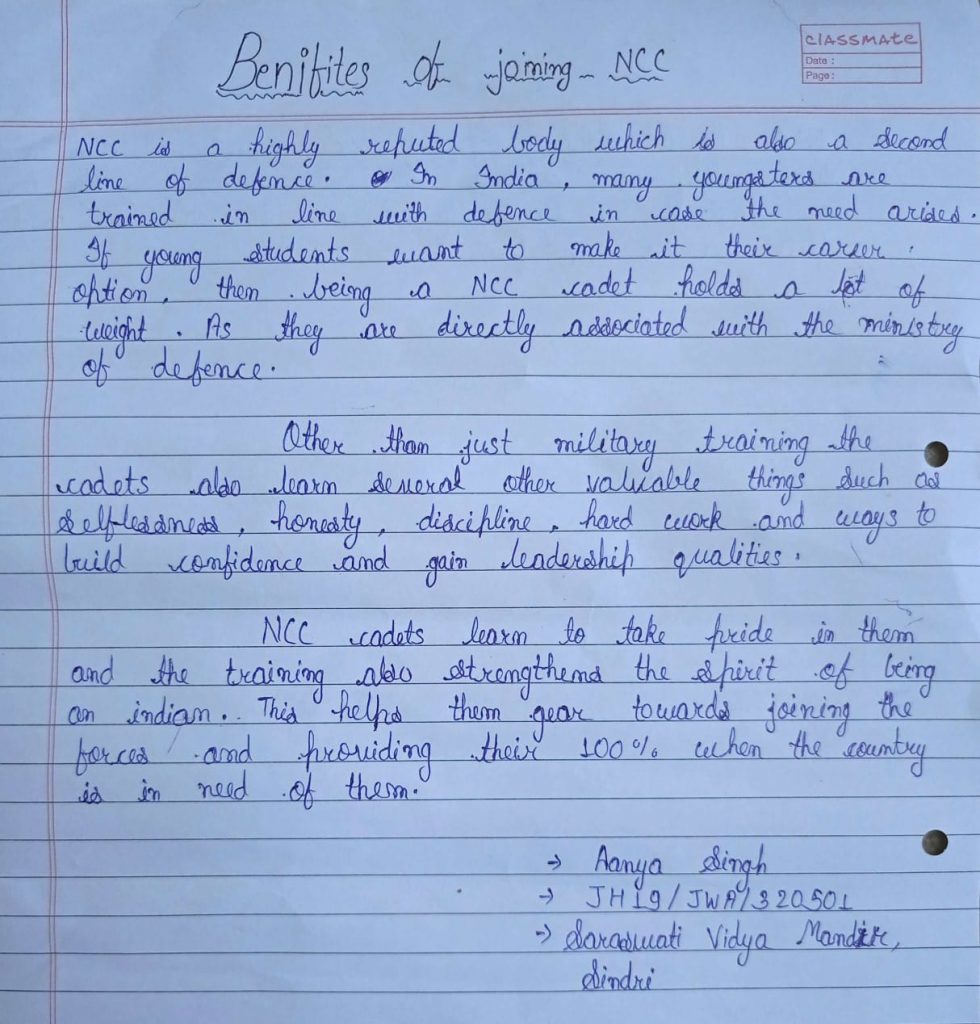 classmate
Date :
Page :
Benifites of joining NCC
NCC is a highly reputed body which is also a second
line of defence. In India, many youngsters are
trained in line with defence in case the need arises.
If young students want to make it their career
option, then being a NCC cadet holds a lot of
weight. As they are directly associated with the ministry
of defence.
Other than just military training the
cadets also learn several other valuable things such as
selflessness, honesty, discipline, hard work and ways to
build confidence and gain leadership qualities.
NCC cadets learn to take pride in them
and the training also strengthens the spirit of being
an indian. This helps them gear towards joining the
forces and providing their 100% when the country
is in need of them.
→ Aanya Singh
→ JH19/JWA/320501
→ Saraswati Vidya Mandir,
Sindri